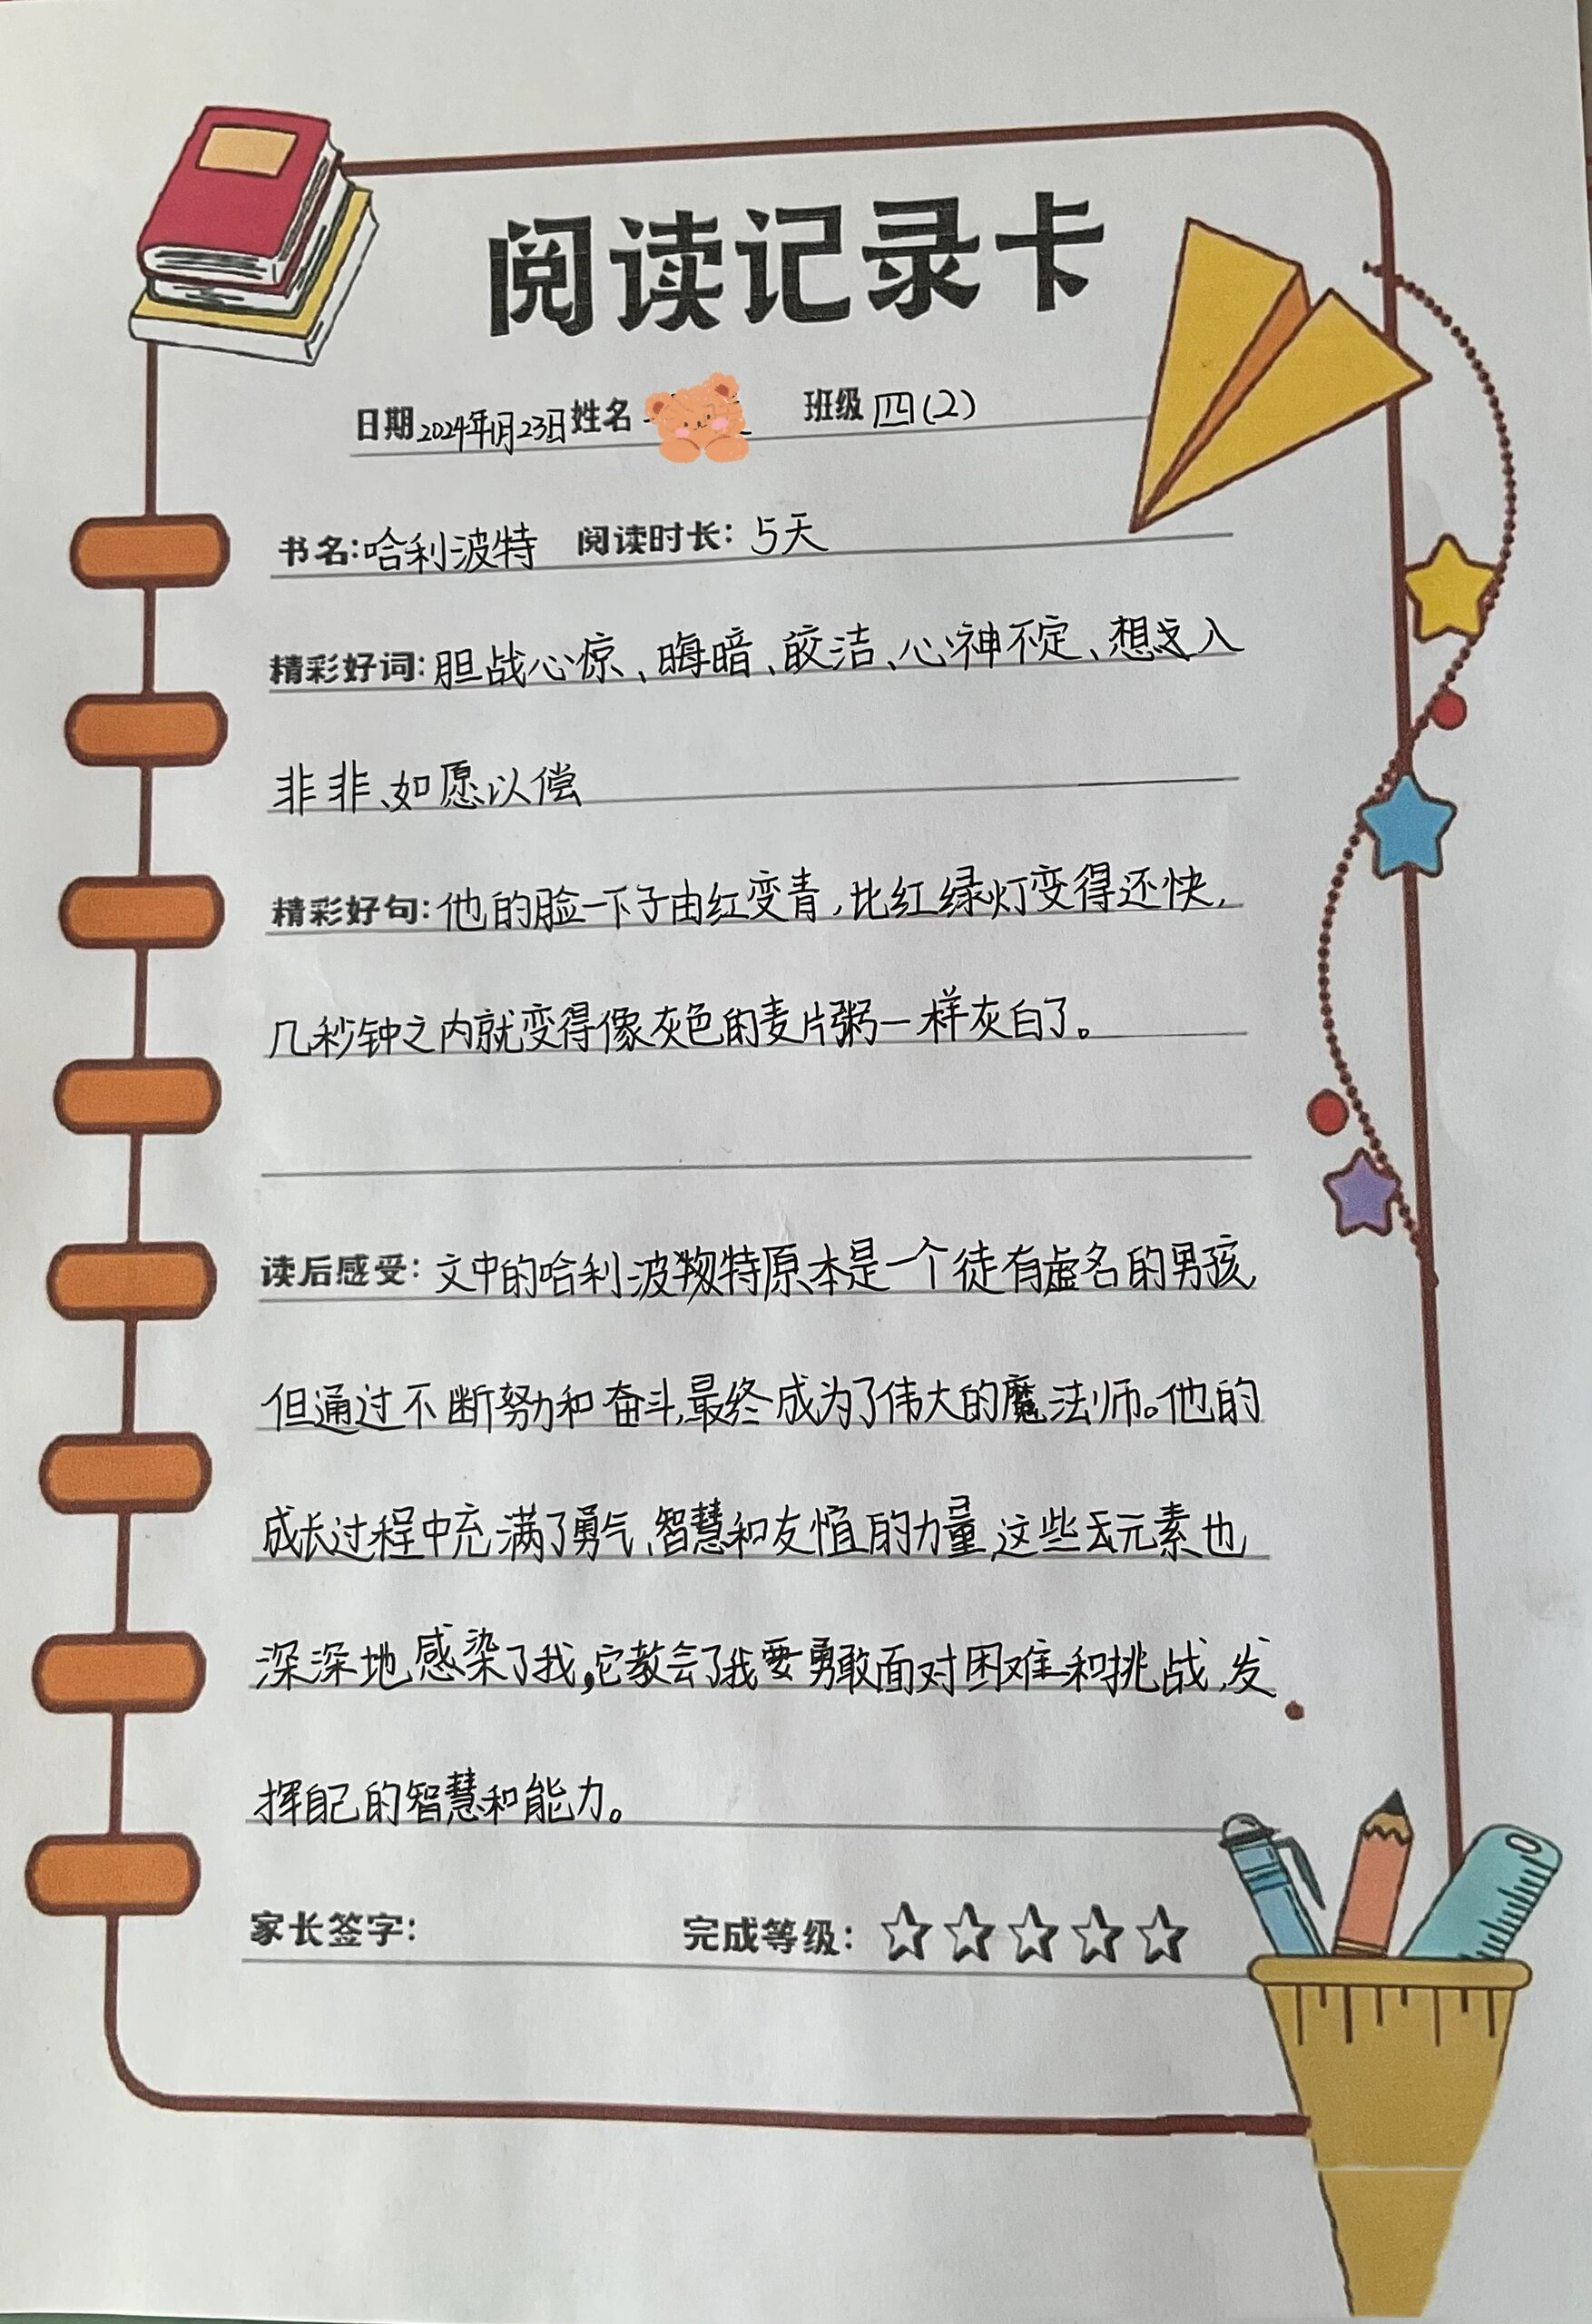 阅读记录卡
日期2024年1月23日姓名 班级四(2)
书名:哈利波特 阅读时长:5天
精彩好词:胆战心惊、晦暗、皎洁、心神不定、想入
非非、如愿以偿
精彩好句:他的脸一下子由红变青,比红绿灯变得还快,
几秒钟之内就变得像灰色的麦片粥一样灰白了。
读后感受:文中的哈利波特原本是一个徒有虚名的男孩,
但通过不断努力和奋斗,最终成为了伟大的魔法师。他的
成长过程中充满了勇气、智慧和友谊的力量,这些元素也
深深地感染了我,它教会了我要勇敢面对困难和挑战,发
挥自己的智慧和能力。
家长签字: 完成等级:☆☆☆☆☆